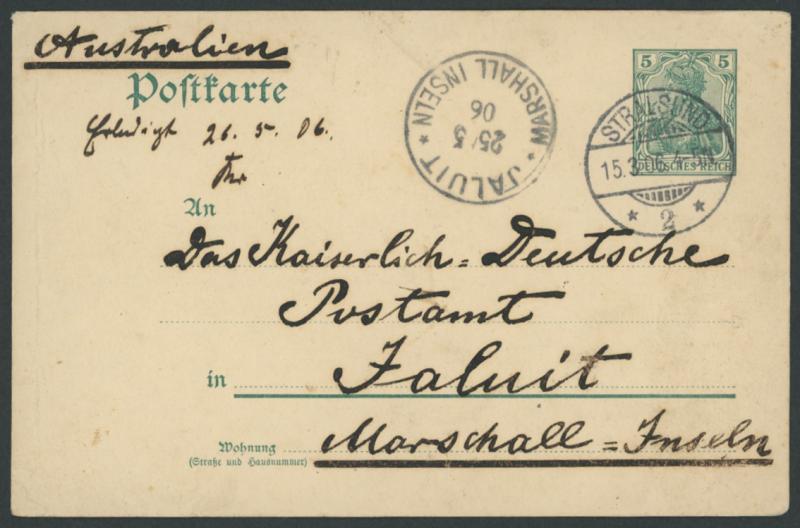 Australien
Postkarte
5 5
DEUTSCHES REICH
STRALSUND
15.3.06.4-5N
* 2 *
MARSHALL INSELN
25/5
06
* JALUIT *
Erledigt 26. 5. 06.
An
Das Kaiserlich = Deutsche
Postamt
in Jaluit
Wohnung
(Straße und Hausnummer)
Marschall = Inseln